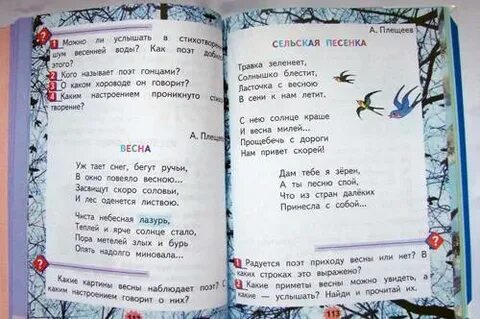 1 Можно ли услышать в стихотворен
шум весенней воды? Как поэт добился
этого?
2 Кого называет поэт гонцами?
3 О каком хороводе он говорит?
4 Каким настроением проникнуто стихо
творение?
А. Плещеев
ВЕСНА
Уж тает снег, бегут ручьи,
В окно повеяло весною...
Засвищут скоро соловьи,
И лес оденется листвою.
Чиста небесная лазурь,
Теплей и ярче солнце стало,
Пора метелей злых и бурь
Опять надолго миновала...
?
Какие картины весны наблюдает поэт? С
каким настроением говорит о них?
А. Плещеев
СЕЛЬСКАЯ ПЕСЕНКА
Травка зеленеет,
Солнышко блестит,
Ласточка с весною
В сени к нам летит.
С нею солнце краше
И весна милей...
Прощебечь с дороги
Нам привет скорей!
Дам тебе я зёрен,
А ты песню спой,
Что из стран далёких
Принесла с собой...
?
1 Радуется поэт приходу весны или нет? В
каких строках это выражено?
2 Какие приметы весны можно увидеть, а
какие — услышать? Найди и прочитай их.
113